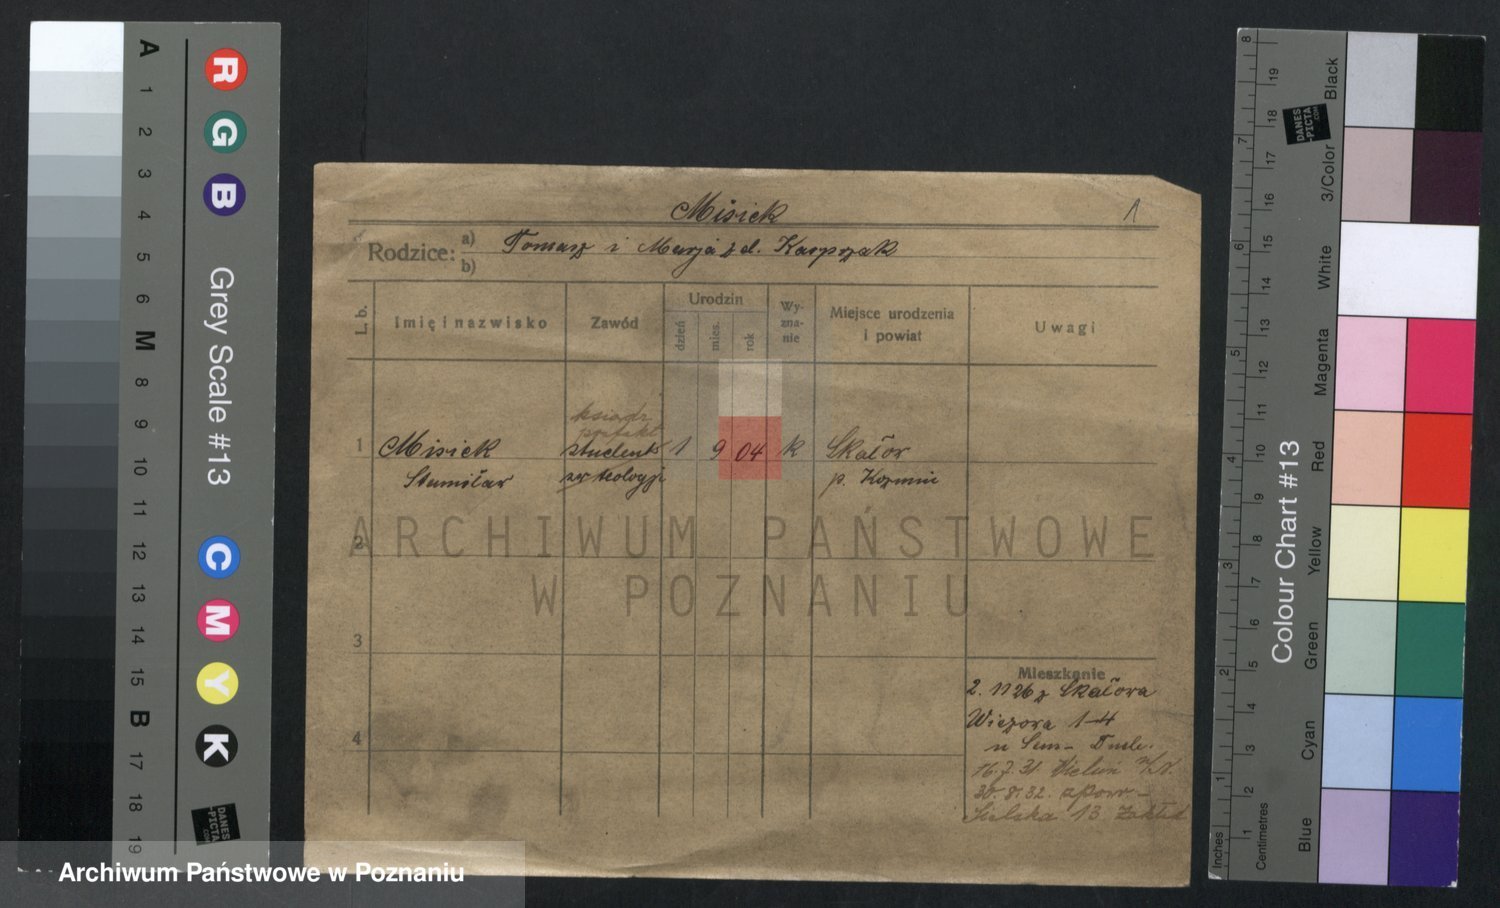 Misiek
1
Rodzice: a) Tomasz i Marja z d. Kasprzak
b)
L. b.
Imię i nazwisko
Zawód
Urodzin
dzień
mies.
rok
Wy-
zna-
nie
Miejsce urodzenia
i powiat
Uwagi
ksiądz
prefekt
1 Misiek student 1 9 04 k Skałow
Stanisław św. teologji p. Kozmin
2
3
4
Mieszkanie
2. 11 26 z Skałowa
Wieżowa 1-4
Sem. Duch.
16.7.31 Wieleń n/N.
30.8.32. z pow-
13 Zakład
ARCHIWUM PAŃSTWOWE
W POZNANIU
Archiwum Państwowe w Poznaniu
A 1 2 3 4 5 6 M 8 9 10 11 12 13 14 15 B 17 18 19
R G B
Grey Scale #13
C M Y K
DANES
PICTA
.COM
Colour Chart #13
Inches
1 2 3 4 5 6 7 8
Centimetres
1 2 3 4 5 6 7 8 9 10 11 12 13 14 15 16 17 18 19
Blue
Cyan
Green
Yellow
Red
Magenta
White
3/Color
Black
DANES
PICTA
.COM